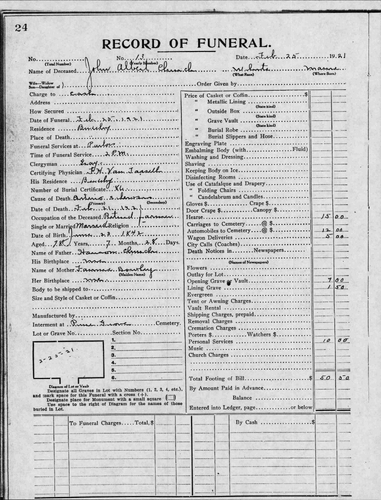 24
RECORD OF FUNERAL.
No. No. 13 Date Feb 25 1921
(Total Number) (Yearly Number)
Name of Deceased John Albert Church White Maine
(What Race) (Where Born)
Wife—Widow
Son—Daughter of Order Given by
Charge to Cash
Address
How Secured
Date of Funeral Feb 25, 1921
Residence
Place of Death
Funeral Services at Parlor
Time of Funeral Service 2 P.M.
Clergyman
Certifying Physician Van Tassell
His Residence
Number of Burial Certificate
Cause of Death Arterio
Date of Death Feb 1921
Occupation of the Deceased Retired farmer
Single or Married Married Religion
Date of Birth 1842
Aged 78 Years, 7 Months, Days.
Name of Father Church
His Birthplace Me
Name of Mother
(Maiden Name)
Her Birthplace Me
Body to be shipped to
Size and Style of Casket or Coffin
Manufactured by
Interment at Pine Grove Cemetery.
Lot or Grave No. Section No.
1.
2.
3.
4.
5.
6.
7.
2-25-21
Diagram of Lot or Vault
Designate all Graves in Lot with Numbers (1, 2, 3, 4, etc.),
and mark space for this Funeral with a cross (+).
Designate place for Monument with a small square
Use space to the right of Diagram for the names of those
buried in Lot.
Price of Casket or Coffin $
" Metallic Lining
(State kind)
" Outside Box
(State kind)
" Grave Vault
(State kind)
" Burial Robe
" Burial Slippers and Hose
Engraving Plate
Embalming Body (with Fluid)
Washing and Dressing
Shaving
Keeping Body on Ice
Disinfecting Rooms
Use of Catafalque and Drapery
" Folding Chairs
" Candelabrum and Candles
Gloves $ Crape $
Door Crape $ Canopy $
Hearse 15 00
Carriages to Cemetery @ $
Automobiles to Cemetery @ $ 12 00
Wagon Deliveries $ 5 00
City Calls (Coaches) $
Death Notices in Newspapers
(Names of Newspapers)
Flowers
Outlay for Lot
Opening Grave or Vault 7 00
Lining Grave 1 50
Evergreen
Tent or Awning Charges
Vault Rental
Shipping Charges, prepaid
Removal Charges
Cremation Charges
Porters $ Watchers $
Personal Services 10 00
Music
Church Charges
Total Footing of Bill $ 50 50
By Amount Paid in Advance
Balance $
Entered into Ledger, page or below
To Funeral Charges, Total $ By Cash $